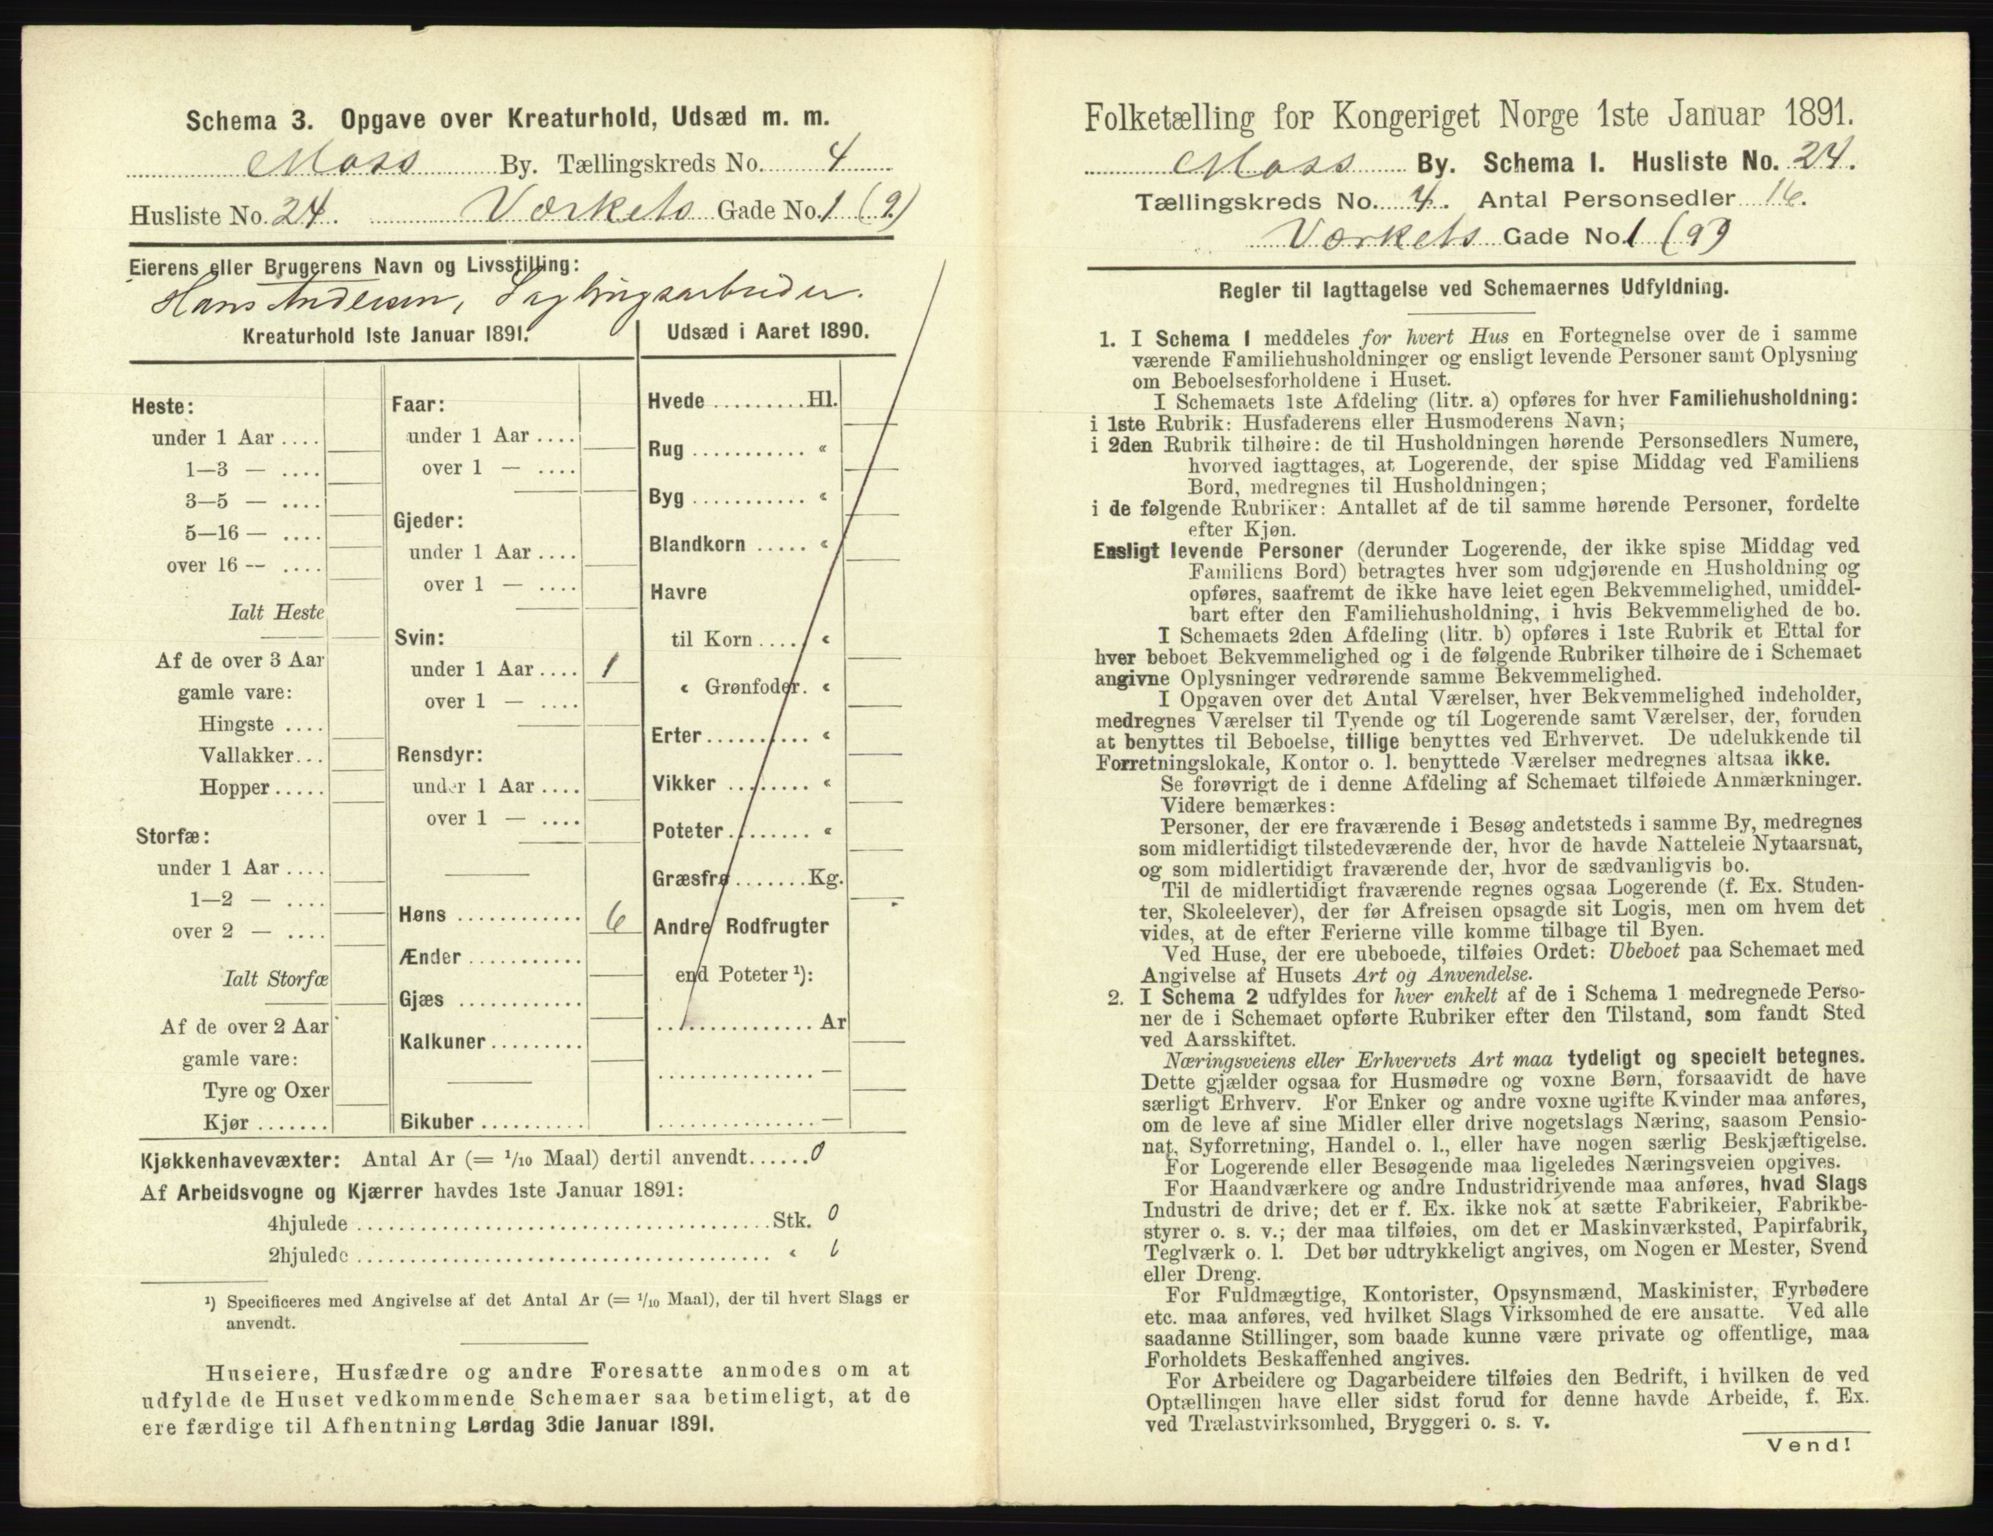 Schema 3. Opgave over Kreaturhold, Udsæd m. m.
Moss By. Tællingskreds No. 4
Husliste No. 24. Værkets Gade No. 1 (9)
Eierens eller Brugerens Navn og Livsstilling:
Hans Andersen,
Kreaturhold 1ste Januar 1891.
Heste:
under 1 Aar ....
1—3 — ....
3—5 — ....
5—16 — ....
over 16 — ....
Ialt Heste
Af de over 3 Aar
gamle vare:
Hingste ....
Vallakker...
Hopper.....
Storfæ:
under 1 Aar ....
1—2 — ....
over 2 — ....
Ialt Storfæ
Af de over 2 Aar
gamle vare:
Tyre og Oxer
Kjør .......
Faar:
under 1 Aar ....
over 1 — ....
Gjeder:
under 1 Aar ....
over 1 — ....
Svin:
under 1 Aar .... 1
over 1 — ....
Rensdyr:
under 1 Aar ....
over 1 — ....
Høns ............ 6
Ænder ...........
Gjæs ............
Kalkuner.........
Bikuber ..........
Udsæd i Aaret 1890.
Hvede .........Hl.
Rug ........... «
Byg ........... «
Blandkorn ..... «
Havre
til Korn .... «
« Grønfoder. «
Erter.......... «
Vikker ........ «
Poteter........ «
Græsfrø.......Kg.
Andre Rodfrugter
end Poteter ¹):
............... Ar
............... —
............... —
Kjøkkenhavevæxter: Antal Ar (= 1/10 Maal) dertil anvendt...... 0
Af Arbeidsvogne og Kjærrer havdes 1ste Januar 1891:
4hjulede ......................................Stk. 0
2hjulede ...................................... «
¹) Specificeres med Angivelse af det Antal Ar (= 1/10 Maal), der til hvert Slags er
anvendt.
Huseiere, Husfædre og andre Foresatte anmodes om at
udfylde de Huset vedkommende Schemaer saa betimeligt, at de
ere færdige til Afhentning Lørdag 3die Januar 1891.
Folketælling for Kongeriget Norge 1ste Januar 1891.
Moss By. Schema 1. Husliste No. 24.
Tællingskreds No. 4. Antal Personsedler 16.
Værkets Gade No. 1 (9)
Regler til Iagttagelse ved Schemaernes Udfyldning.
1. I Schema 1 meddeles for hvert Hus en Fortegnelse over de i samme
værende Familiehusholdninger og ensligt levende Personer samt Oplysning
om Beboelsesforholdene i Huset.
I Schemaets 1ste Afdeling (litr. a) opføres for hver Familiehusholdning:
i 1ste Rubrik: Husfaderens eller Husmoderens Navn;
i 2den Rubrik tilhøire: de til Husholdningen hørende Personsedlers Numere,
hvorved iagttages, at Logerende, der spise Middag ved Familiens
Bord, medregnes til Husholdningen;
i de følgende Rubriker: Antallet af de til samme hørende Personer, fordelte
efter Kjøn.
Ensligt levende Personer (derunder Logerende, der ikke spise Middag ved
Familiens Bord) betragtes hver som udgjørende en Husholdning og
opføres, saafremt de ikke have leiet egen Bekvemmelighed, umiddel-
bart efter den Familiehusholdning, i hvis Bekvemmelighed de bo.
I Schemaets 2den Afdeling (litr. b) opføres i 1ste Rubrik et Ettal for
hver beboet Bekvemmelighed og i de følgende Rubriker tilhøire de i Schemaet
angivne Oplysninger vedrørende samme Bekvemmelighed.
I Opgaven over det Antal Værelser, hver Bekvemmelighed indeholder,
medregnes Værelser til Tyende og til Logerende samt Værelser, der, foruden
at benyttes til Beboelse, tillige benyttes ved Erhvervet. De udelukkende til
Forretningslokale, Kontor o. l. benyttede Værelser medregnes altsaa ikke.
Se forøvrigt de i denne Afdeling af Schemaet tilføiede Anmærkninger.
Videre bemærkes:
Personer, der ere fraværende i Besøg andetsteds i samme By, medregnes
som midlertidigt tilstedeværende der, hvor de havde Natteleie Nytaarsnat,
og som midlertidigt fraværende der, hvor de sædvanligvis bo.
Til de midlertidigt fraværende regnes ogsaa Logerende (f. Ex. Studen-
ter, Skoleelever), der før Afreisen opsagde sit Logis, men om hvem det
vides, at de efter Ferierne ville komme tilbage til Byen.
Ved Huse, der ere ubeboede, tilføies Ordet: Ubeboet paa Schemaet med
Angivelse af Husets Art og Anvendelse.
2. I Schema 2 udfyldes for hver enkelt af de i Schema 1 medregnede Perso-
ner de i Schemaet opførte Rubriker efter den Tilstand, som fandt Sted
ved Aarsskiftet.
Næringsveiens eller Erhvervets Art maa tydeligt og specielt betegnes.
Dette gjælder ogsaa for Husmødre og voxne Børn, forsaavidt de have
særligt Erhverv. For Enker og andre voxne ugifte Kvinder maa anføres,
om de leve af sine Midler eller drive nogetslags Næring, saasom Pensio-
nat, Syforretning, Handel o. l., eller have nogen særlig Beskjæftigelse.
For Logerende eller Besøgende maa ligeledes Næringsveien opgives.
For Haandværkere og andre Industridrivende maa anføres, hvad Slags
Industri de drive; det er f. Ex. ikke nok at sætte Fabrikeier, Fabrikbe-
styrer o. s. v.; der maa tilføies, om det er Maskinværksted, Papirfabrik,
Teglværk o. l. Det bør udtrykkeligt angives, om Nogen er Mester, Svend
eller Dreng.
For Fuldmægtige, Kontorister, Opsynsmænd, Maskinister, Fyrbødere
etc. maa anføres, ved hvilket Slags Virksomhed de ere ansatte. Ved alle
saadanne Stillinger, som baade kunne være private og offentlige, maa
Forholdets Beskaffenhed angives.
For Arbeidere og Dagarbeidere tilføies den Bedrift, i hvilken de ved
Optællingen have eller sidst forud for denne havde Arbeide, f. Ex.
ved Trælastvirksomhed, Bryggeri o. s. v.
Vend!